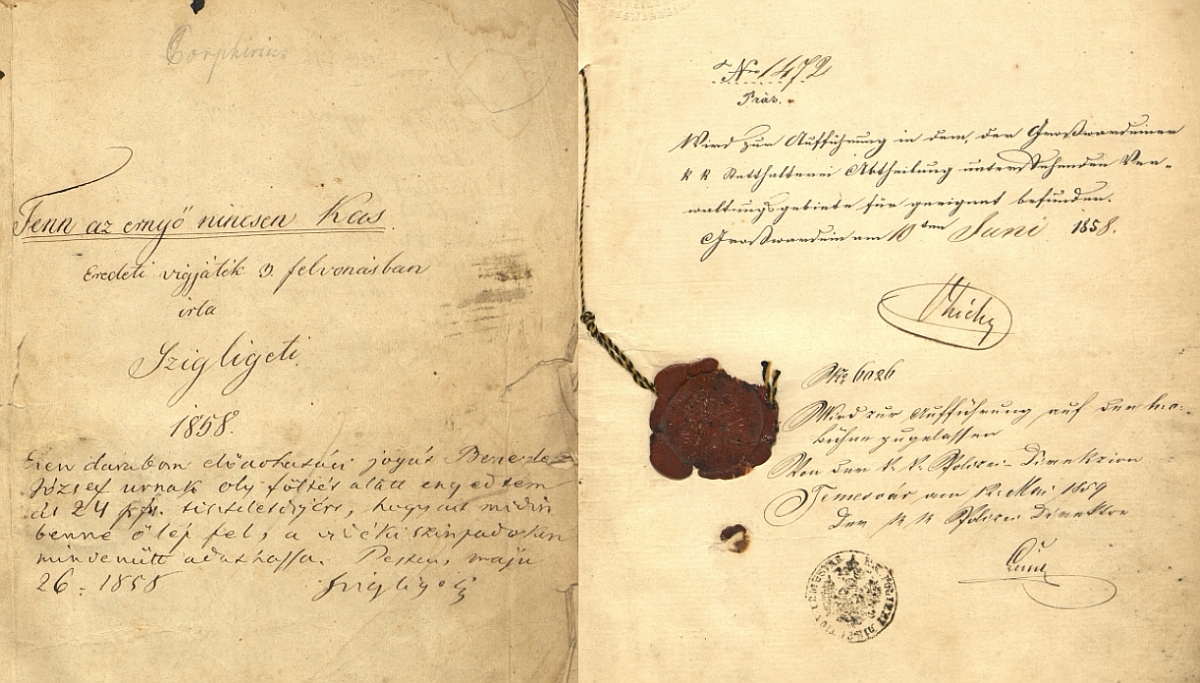 Fenn az ernyő nincsen Kas.
Eredeti vigjáték 3. felvonásban
irta
Szigligeti
1858.
Ezen darabom előadhatási jogát Benedek
József urnak oly föltét alatt engedtem
át 24 pfr. tiszteletdíjért, hogy azt midőn
benne ő lép fel, a vidéki szinpadokon
mindenütt adathassa. Pesten, maju
26. 1858 Szigligeti
Nro 1472
Präs.
Wird zur Aufführung in dem, der Großwardeiner
k k Statthalterei Abtheilung unterstehenden Ver-
waltungsgebiete für geeignet befunden.
Großwardein am 10ten Juni 1858.
Zichy
No 6026
Wird zur Aufführung auf der
bühne zugelassen
Von der k. k. Polizei-Direktion
Temesvár am 12. Mai 1859
Der k k Polizei Direktor